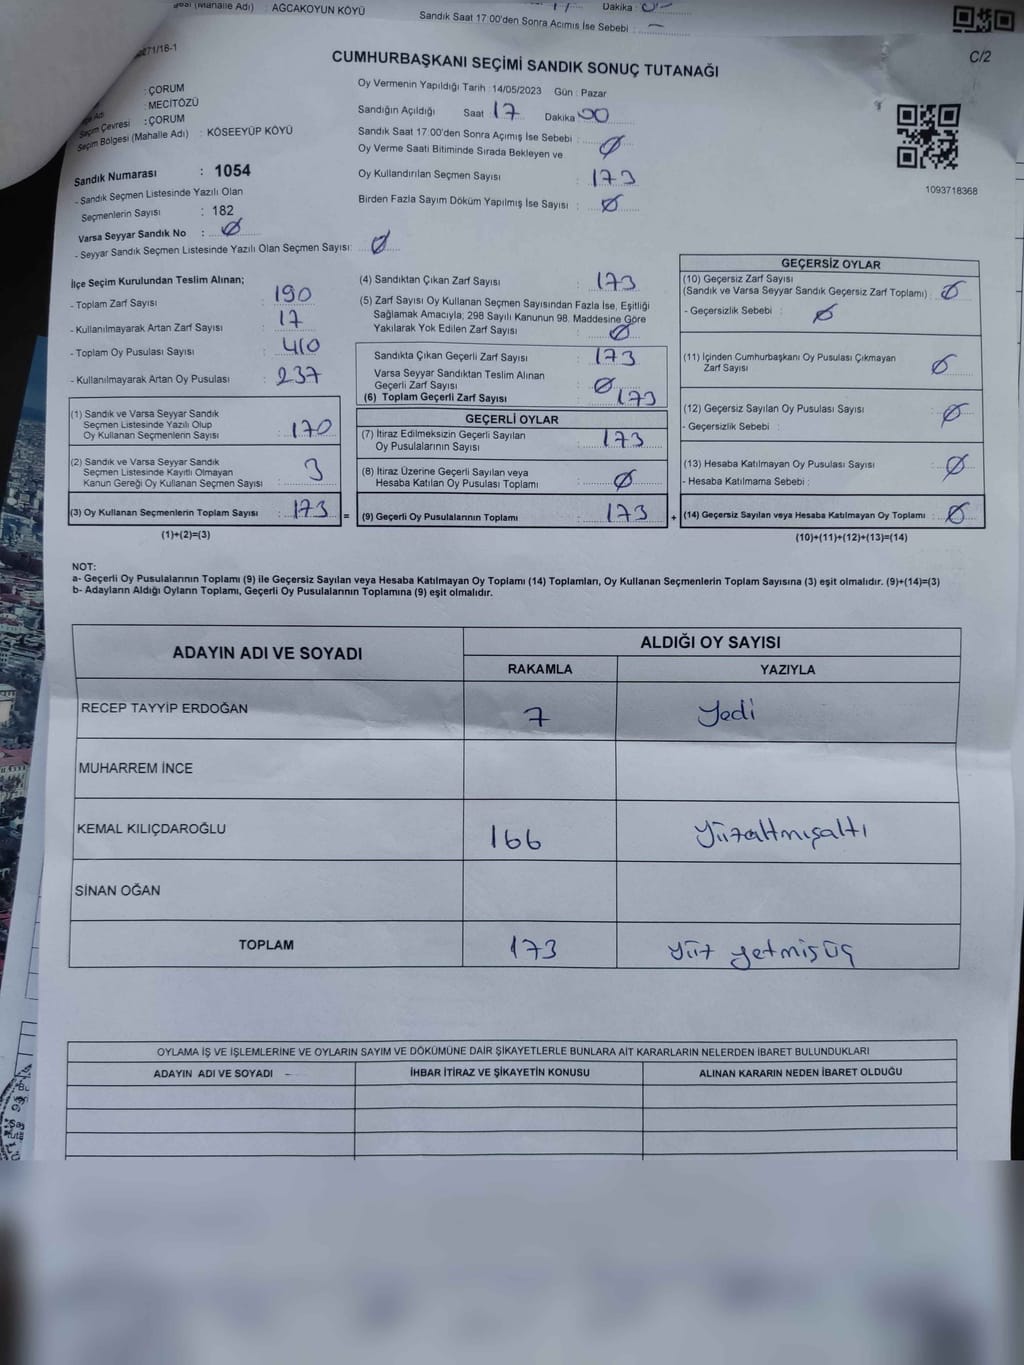 Mahalle Adı) : AĞCAKOYUN KÖYÜ
Dakika
Sandık Saat 17:00'den Sonra Açımış İse Sebebi :
271/16-1
C/2
CUMHURBAŞKANI SEÇİMİ SANDIK SONUÇ TUTANAĞI
: ÇORUM
: MECİTÖZÜ
Seçim Çevresi : ÇORUM
Seçim Bölgesi (Mahalle Adı) : KÖSEEYÜP KÖYÜ
Sandık Numarası : 1054
- Sandık Seçmen Listesinde Yazılı Olan
Seçmenlerin Sayısı : 182
Varsa Seyyar Sandık No : Ø
- Seyyar Sandık Seçmen Listesinde Yazılı Olan Seçmen Sayısı: Ø
Oy Vermenin Yapıldığı Tarih : 14/05/2023 Gün : Pazar
Sandığın Açıldığı Saat 17 Dakika 00
Sandık Saat 17:00'den Sonra Açımış İse Sebebi : Ø
Oy Verme Saati Bitiminde Sırada Bekleyen ve
Oy Kullandırılan Seçmen Sayısı : 173
Birden Fazla Sayım Döküm Yapılmış İse Sayısı : Ø
1093718368
İlçe Seçim Kurulundan Teslim Alınan;
- Toplam Zarf Sayısı : 190
- Kullanılmayarak Artan Zarf Sayısı : 17
- Toplam Oy Pusulası Sayısı : 410
- Kullanılmayarak Artan Oy Pusulası : 237
(1) Sandık ve Varsa Seyyar Sandık
Seçmen Listesinde Yazılı Olup
Oy Kullanan Seçmenlerin Sayısı : 170
(2) Sandık ve Varsa Seyyar Sandık
Seçmen Listesinde Kayıtlı Olmayan
Kanun Gereği Oy Kullanan Seçmen Sayısı : 3
(3) Oy Kullanan Seçmenlerin Toplam Sayısı : 173 =
(1)+(2)=(3)
(4) Sandıktan Çıkan Zarf Sayısı : 173
(5) Zarf Sayısı Oy Kullanan Seçmen Sayısından Fazla İse, Eşitliği
Sağlamak Amacıyla; 298 Sayılı Kanunun 98. Maddesine Göre
Yakılarak Yok Edilen Zarf Sayısı : Ø
Sandıkta Çıkan Geçerli Zarf Sayısı : 173
Varsa Seyyar Sandıktan Teslim Alınan
Geçerli Zarf Sayısı : Ø
(6) Toplam Geçerli Zarf Sayısı : 173
GEÇERLİ OYLAR
(7) İtiraz Edilmeksizin Geçerli Sayılan
Oy Pusulalarının Sayısı : 173
(8) İtiraz Üzerine Geçerli Sayılan veya
Hesaba Katılan Oy Pusulası Toplamı : Ø
(9) Geçerli Oy Pusulalarının Toplamı : 173 +
GEÇERSİZ OYLAR
(10) Geçersiz Zarf Sayısı
(Sandık ve Varsa Seyyar Sandık Geçersiz Zarf Toplamı) : Ø
- Geçersizlik Sebebi : Ø
(11) İçinden Cumhurbaşkanı Oy Pusulası Çıkmayan
Zarf Sayısı : Ø
(12) Geçersiz Sayılan Oy Pusulası Sayısı : Ø
- Geçersizlik Sebebi :
(13) Hesaba Katılmayan Oy Pusulası Sayısı : Ø
- Hesaba Katılmama Sebebi :
(14) Geçersiz Sayılan veya Hesaba Katılmayan Oy Toplamı : Ø
(10)+(11)+(12)+(13)=(14)
NOT:
a- Geçerli Oy Pusulalarının Toplamı (9) ile Geçersiz Sayılan veya Hesaba Katılmayan Oy Toplamı (14) Toplamları, Oy Kullanan Seçmenlerin Toplam Sayısına (3) eşit olmalıdır. (9)+(14)=(3)
b- Adayların Aldığı Oyların Toplamı, Geçerli Oy Pusulalarının Toplamına (9) eşit olmalıdır.
ADAYIN ADI VE SOYADI
ALDIĞI OY SAYISI
RAKAMLA YAZIYLA
RECEP TAYYİP ERDOĞAN 7 Yedi
MUHARREM İNCE
KEMAL KILIÇDAROĞLU 166 Yüzaltmışaltı
SİNAN OĞAN
TOPLAM 173 Yüz yetmişüç
OYLAMA İŞ VE İŞLEMLERİNE VE OYLARIN SAYIM VE DÖKÜMÜNE DAİR ŞİKAYETLERLE BUNLARA AİT KARARLARIN NELERDEN İBARET BULUNDUKLARI
ADAYIN ADI VE SOYADI İHBAR İTİRAZ VE ŞİKAYETİN KONUSU ALINAN KARARIN NEDEN İBARET OLDUĞU